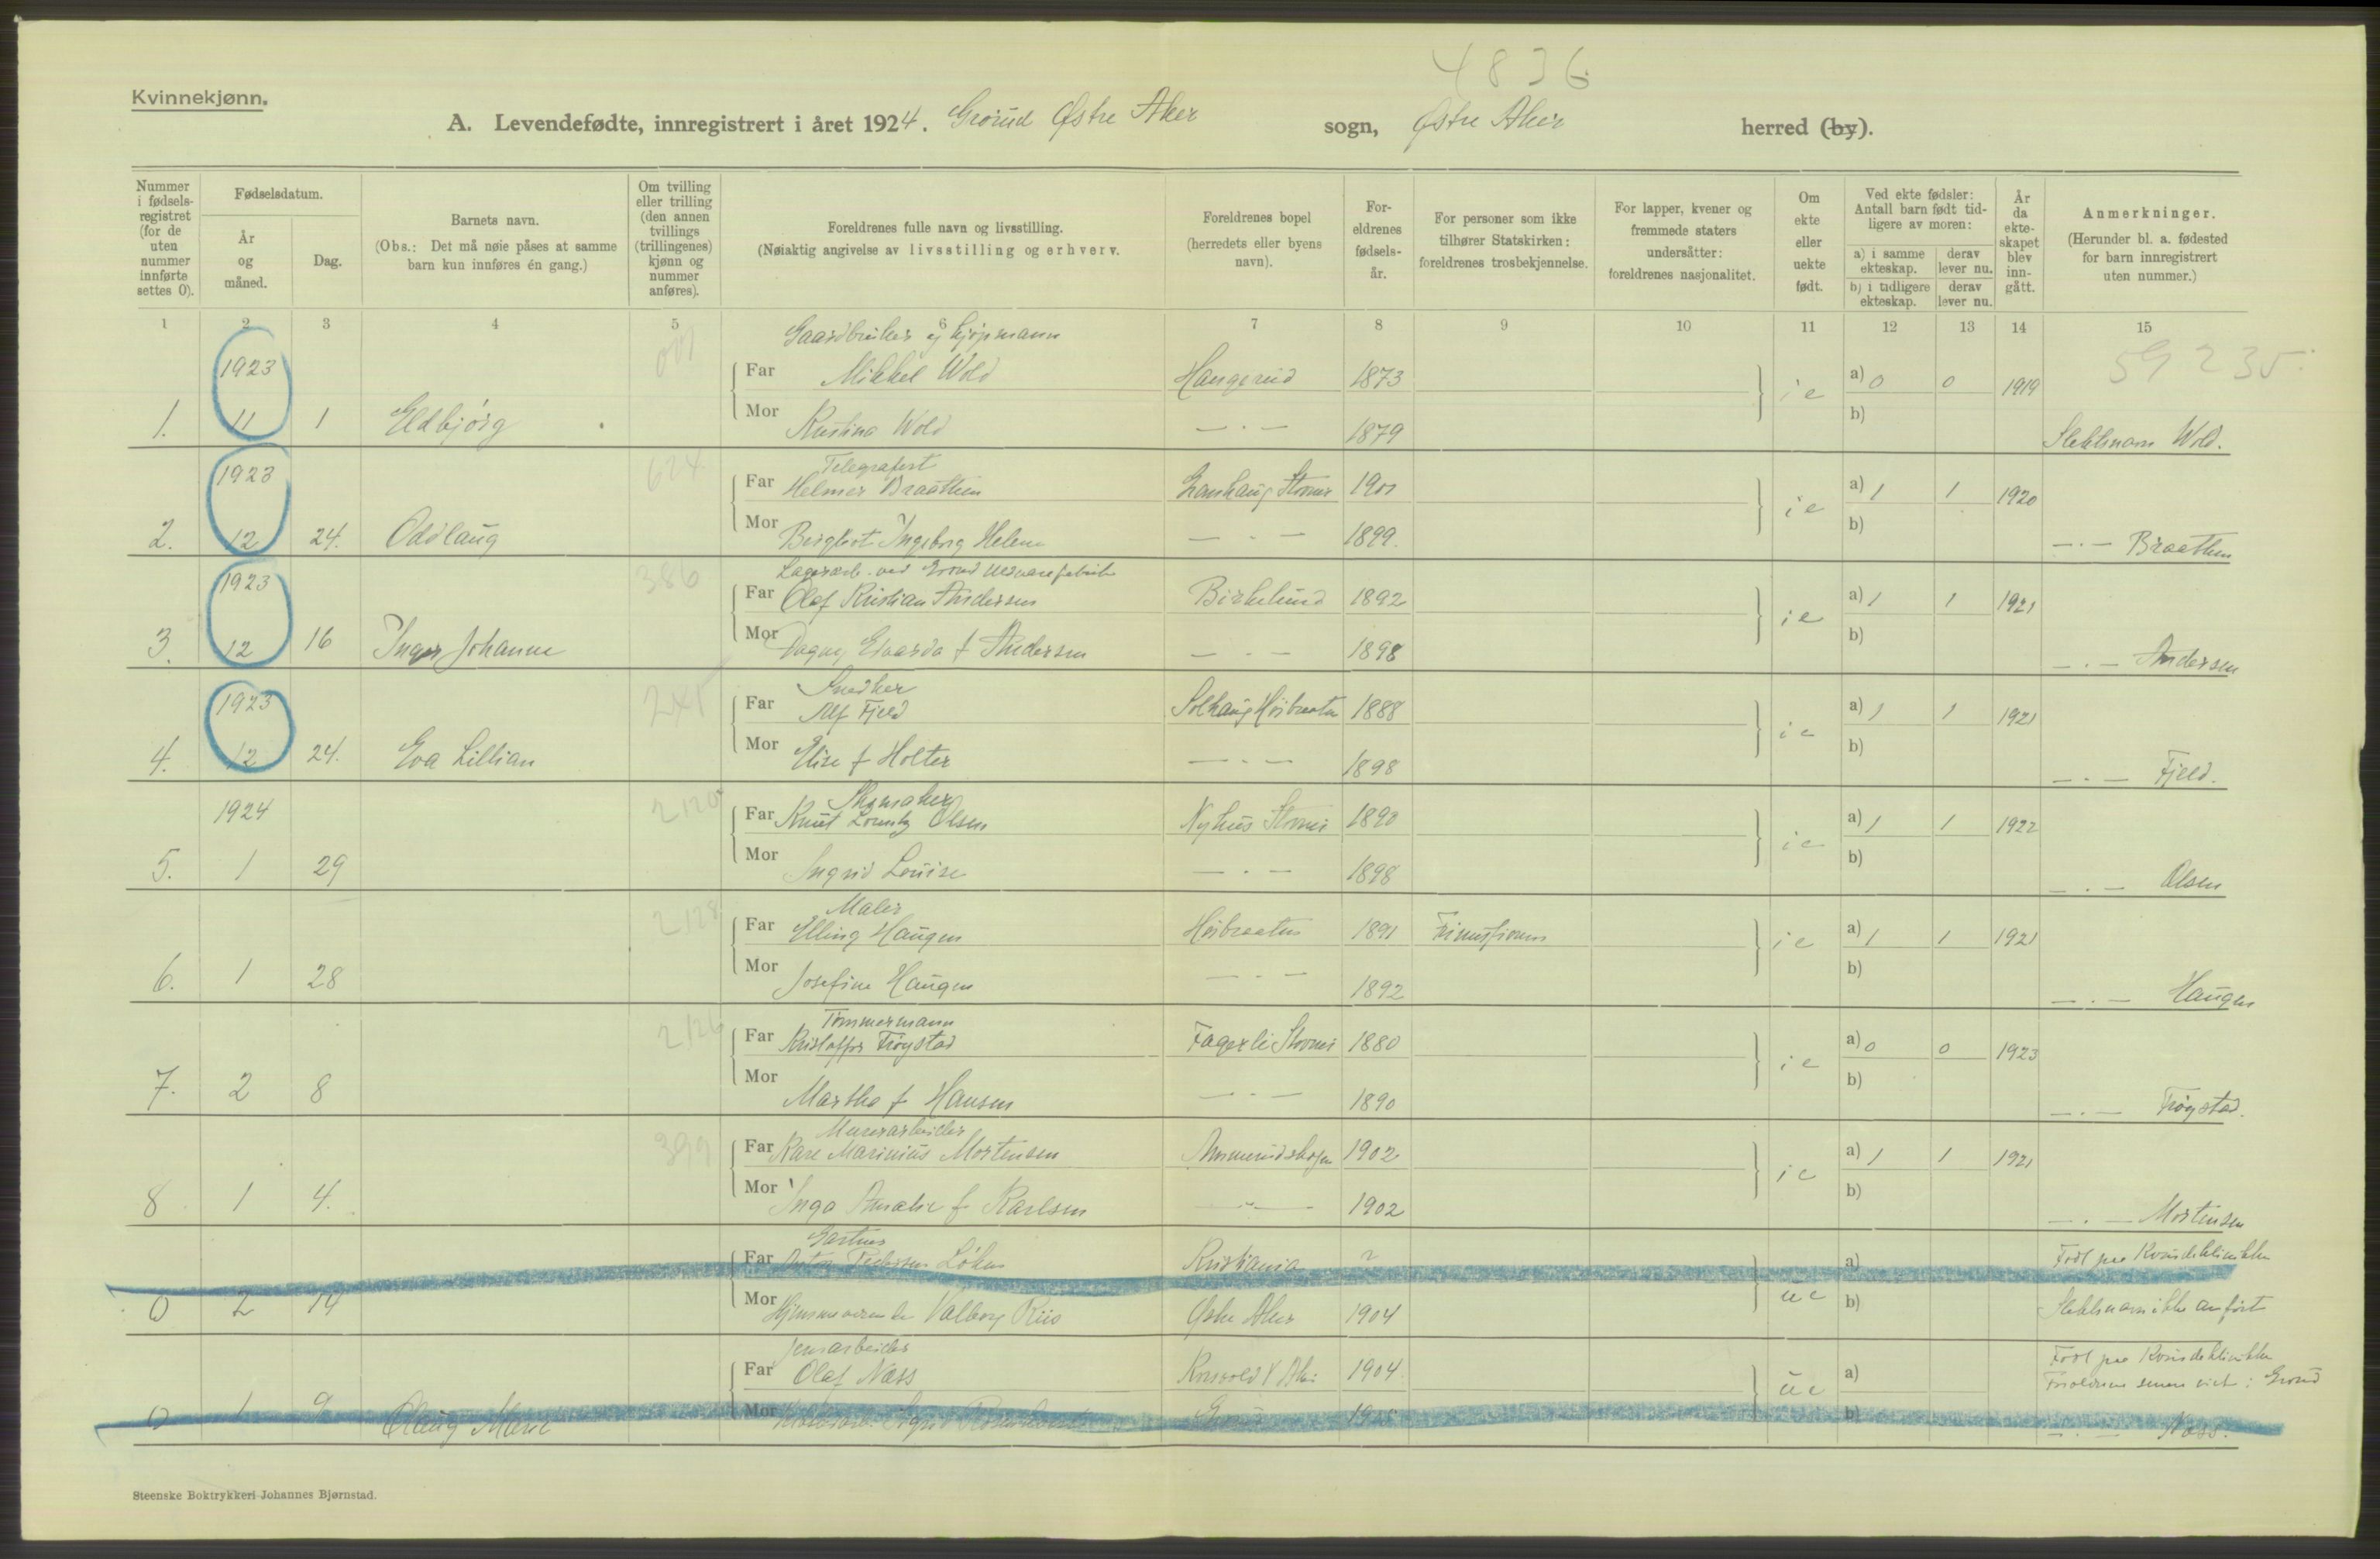 4836
Kvinnekjønn.
A. Levendefødte, innregistrert i året 1924. Grorud Østre Aker sogn, Østre Aker herred (by).
Nummer i fødselsregistret (for de uten nummer innførte settes 0).
Fødselsdatum.
År og måned.
Dag.
Barnets navn.
(Obs.: Det må nøie påses at samme barn kun innføres én gang.)
Om tvilling eller trilling (den annen tvillings (trillingenes) kjønn og nummer anføres).
Foreldrenes fulle navn og livsstilling.
(Nøiaktig angivelse av livsstilling og erhverv.
Foreldrenes bopel (herredets eller byens navn).
Foreldrenes fødselsår.
For personer som ikke tilhører Statskirken: foreldrenes trosbekjennelse.
For lapper, kvener og fremmede staters undersåtter: foreldrenes nasjonalitet.
Om ekte eller uekte født.
Ved ekte fødsler: Antall barn født tidligere av moren:
a) i samme ekteskap.
derav lever nu.
b) i tidligere ekteskap.
derav lever nu.
År da ekteskapet blev inngått.
Anmerkninger.
(Herunder bl. a. fødested for barn innregistrert uten nummer.)
1 2 3 4 5 6 7 8 9 10 11 12 13 14 15
Gaardbruker og kjøpmann
1923 Far Mikkel Wold Haugerud 1873 ie a) 0 0 1919
1. 11 1 Eldbjørg Mor Kristina Wold — . — 1879 b) Slektsnavn Wold.
624 Telegrafist
1923 Far Helmer Braathen Stovner 1901 ie a) 1 1 1920
2. 12 24. Oddlaug Mor Bergliot Ingeborg Helene — . — 1899. b) — . — Braathen
386 Lagerarb. ved Grorud
1923 Far Olaf Kristian Andersen Birkelund 1892 ie a) 1 1 1921
3. 12 16 Inger Johanne Mor Dagny Edvarda f Andersen — . — 1898 b) — . — Andersen
Snedker
1923 Far Alf Fjeld Solhaug Høibraaten 1888 ie a) 1 1 1921
4. 12 24. Eva Lillian Mor Elise f Holter — . — 1898 b) — . — Fjeld.
2120 Skomaker
1924 Far Knut Olsen Nyhus Stovner 1890 ie a) 1 1 1922
5. 1 29 Mor Ingrid Louise — . — 1898 b) — . — Olsen
2128 Maler
Far Elling Haugen Høibraaten 1891 ie a) 1 1 1921
6. 1 28 Mor Josefine Haugen — . — 1892 b) — . — Haugen
2126 Tømmermann
Far Kristoffer Frøystad Fagerli Stovner 1880 ie a) 0 0 1923
7. 2 8 Mor Martha f Hansen — . — 1890 b) — . — Frøystad.
399 Murerarbeider
Far Kåre Marinius Mortensen Ammerudskogen 1902 ie a) 1 1 1921
8 1 4. Mor Inga Amalie f Karlsen — . — 1902 b) — . — Mortensen
Gartner
Far Anton Løken Kristiania a) Født paa Kvindeklinikken
0 2 14 Mor Hjemmeværende Valborg Riis Østre Aker 1904 ue b) Slektsnavn ikke anført
Jernarbeider
Far Olaf Næss 1904 ue a) Født paa Kvindeklinikken
Foreldrene senere viet i Grorud
0 1 9 Olaug Marie Mor Sigrid Grorud b) — . — Næss.
Steenske Boktrykkeri Johannes Bjørnstad.